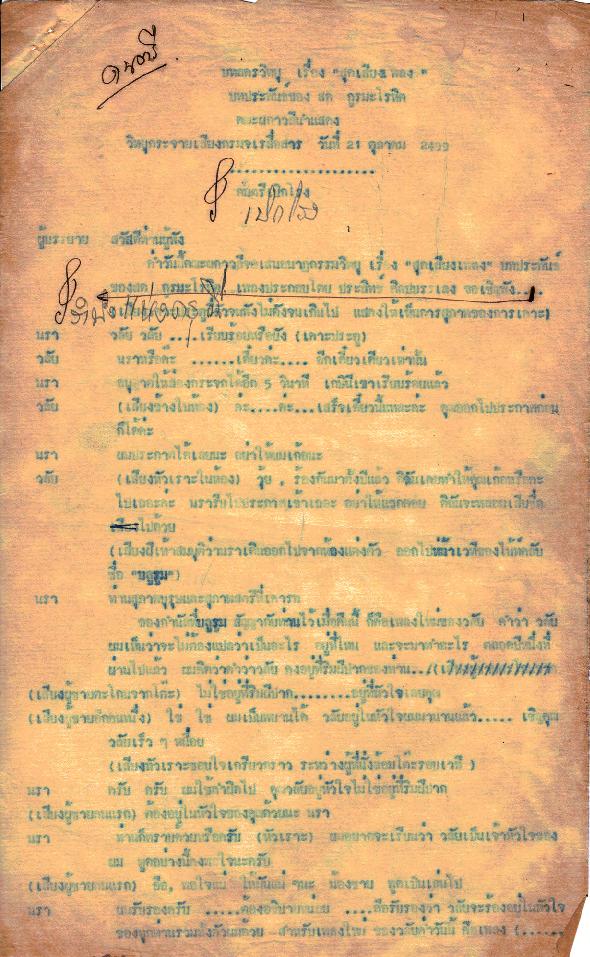 ดนตรี
บทละครวิทยุ เรื่อง "สุดเสียงเพลง"
บทประพันธ์ของ สด กูรมะโรหิต
คณะผกาวลีนำแสดง
วิทยุกระจายเสียงกรมจเรสื่อสาร วันที่ 21 ตุลาคม 2499
...................
ดนตรีเปิดโรง
เปิดโรง
ผู้บรรยาย สวัสดีท่านผู้ฟัง
ค่ำวันนี้คณะผกาวลีจะเสนอนาฏกรรมวิทยุ เรื่อง "สุดเสียงเพลง" บทประพันธ์
ของสด กูรมะโรหิต เพลงประกอบโดย ประสิทธิ์ ศิลปบรรเลง ขอเชิญฟัง...
แสดงให้เห็นการสุภาพของการเคาะ)
นรา วลัย วลัย ....เรียบร้อยหรือยัง (เคาะประตู)
วลัย นราหรือคะ .......เดี๋ยวค่ะ.... อีกเดี๋ยวเดียวเท่านั้น
นรา อนุญาตให้ส่องกระจกได้อีก 5 วินาที
วลัย (เสียงข้างในห้อง) ค่ะ....ค่ะ...เสร็จเดี๋ยวนี้แหละค่ะ คุณออกไปประกาศก่อน
ก็ได้ค่ะ
นรา ผมประกาศได้เลยนะ อย่าให้ผมเก้อนะ
วลัย (เสียงหัวเราะในห้อง) วุ้ย , ร้องกันมาตั้งปีแล้ว ดิฉันเคยทำให้คุณเก้อหรือคะ
ไปเถอะค่ะ นรารีบไปประกาศเข้าเถอะ อย่าให้แขกคอย ดิฉันจะพลอยเสียชื่อ
ไปด้วย
(เสียงฝีเท้าสมมุติว่านราเดินออกไปจากห้องแต่งตัว ออกไปหน้าเวทีของไน้ท์คลับ
ชื่อ "บลูรูม")
นรา ท่านสุภาพบุรุษและสุภาพสตรีที่เคารพ
ของกำนัลที่บลูรูม สัญญากับท่านไว้เมื่อคืนนี้ ก็คือเพลงใหม่ของวลัย คำว่า วลัย
ผมเห็นว่าจะไม่ต้องแปลว่าเป็นอะไร อยู่ที่ไหน และจะมาทำอะไร ตลอดปีหนึ่งที่
ผ่านไปแล้ว ผมคิดว่าคำว่าวลัย คงอยู่ที่ริมฝีปากของท่าน...
(เสียงผู้ชายตะโกนจากโต๊ะ) ไม่ใช่อยู่ที่ริมฝีปาก.........อยู่ที่หัวใจเลยคุณ
(เสียงผู้ชายอีกคนหนึ่ง) ใช่ ใช่ ผมเป็นพยานได้ วลัยอยู่ในหัวใจผมมานานแล้ว..... เชิญคุณ
วลัยเร็ว ๆ หน่อย
(เสียงหัวเราะชอบใจเกรียวกราว ระหว่างผู้ที่นั่งล้อมโต๊ะรอบเวที )
นรา ครับ ครับ ผมใช้คำผิดไป คุณวลัยอยู่หัวใจไม่ใช่อยู่ที่ริมฝีปาก
(เสียงผู้ชายคนแรก) ต้องอยู่ในหัวใจของคุณด้วยนะ นรา
นรา ท่านก็ทราบด้วยหรือครับ (หัวเราะ) ผมอยากจะเรียนว่า วลัยเป็นเจ้าหัวใจของ
ผม พูดอย่างนี้คงพอใจนะครับ
(เสียงผู้ชายคนแรก) ฮือ, พอใจแน่ ให้มันแน่ ๆนะ น้องชาย พูดเป็นเล่นไป
นรา ผมรับรองครับ .....ต้องอธิบายหน่อย ....คือรับรองว่า วลัยจะร้องอยู่ในหัวใจ
ของทุกท่านรวมทั้งตัวผมด้วย สำหรับเพลงใหม่ ของวลัยค่ำวันนี้ คือเพลง (......